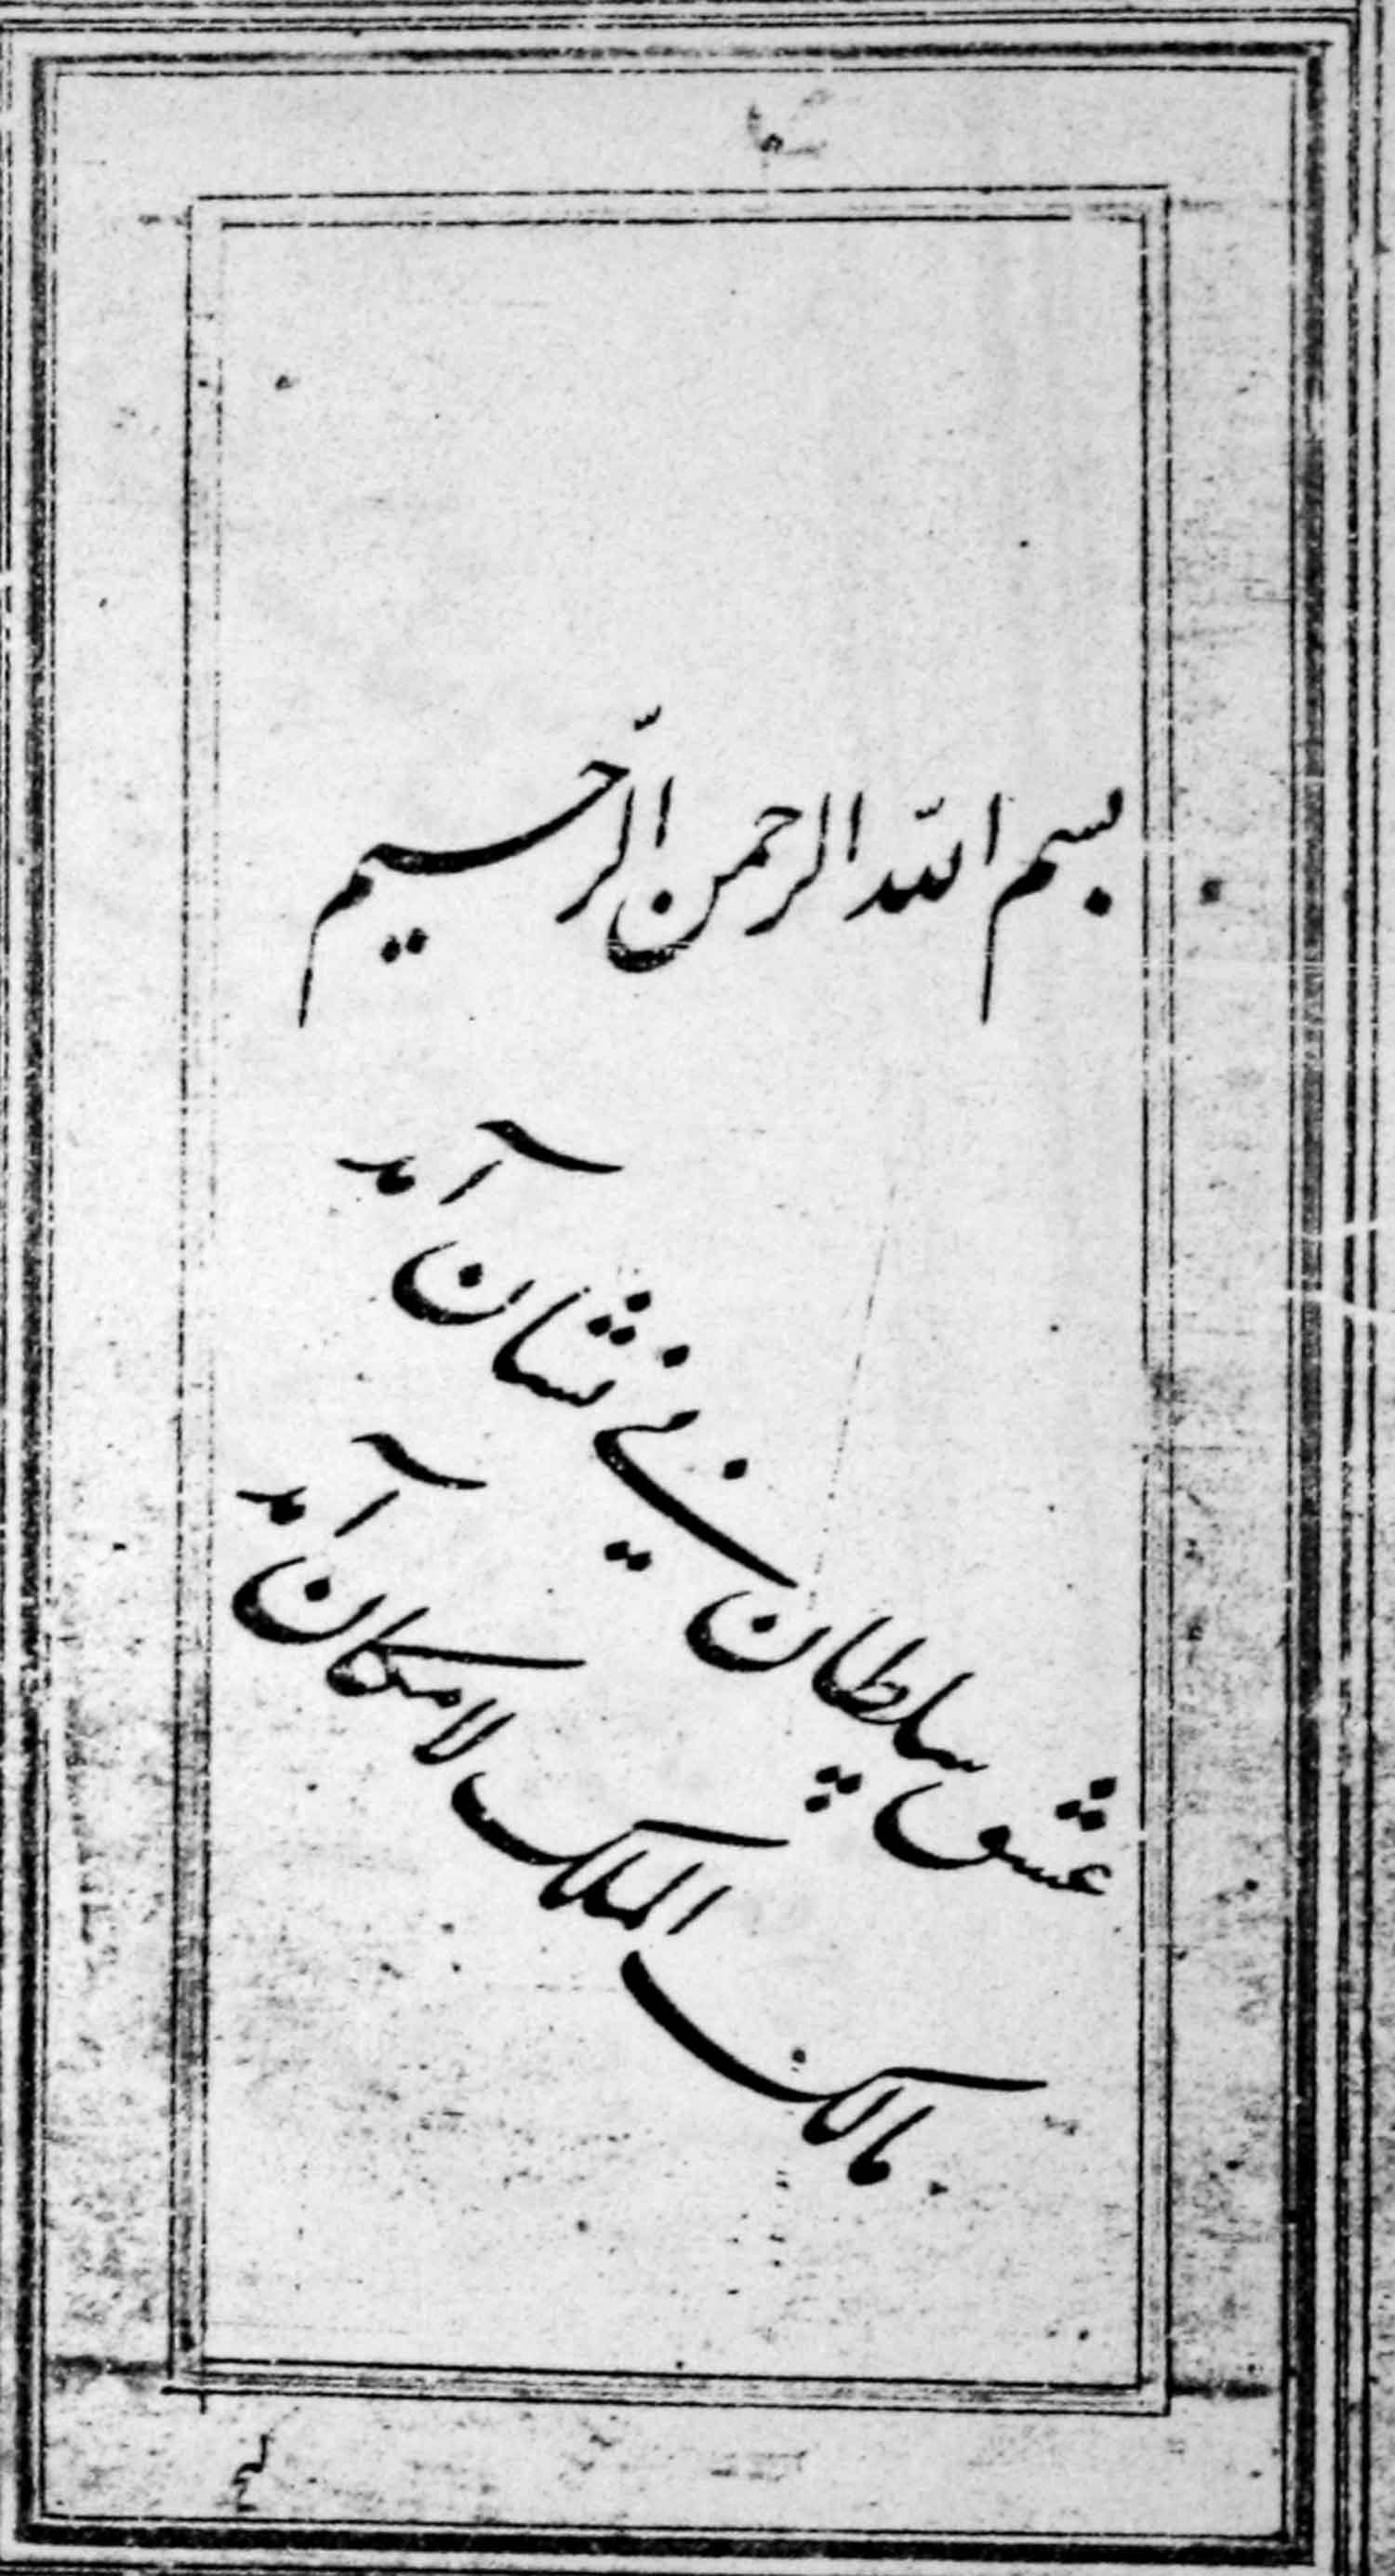 بسم الله الرحمن الرحیم
عشق سلطان بی نشان آمد
مالک الملک لامکان آمد